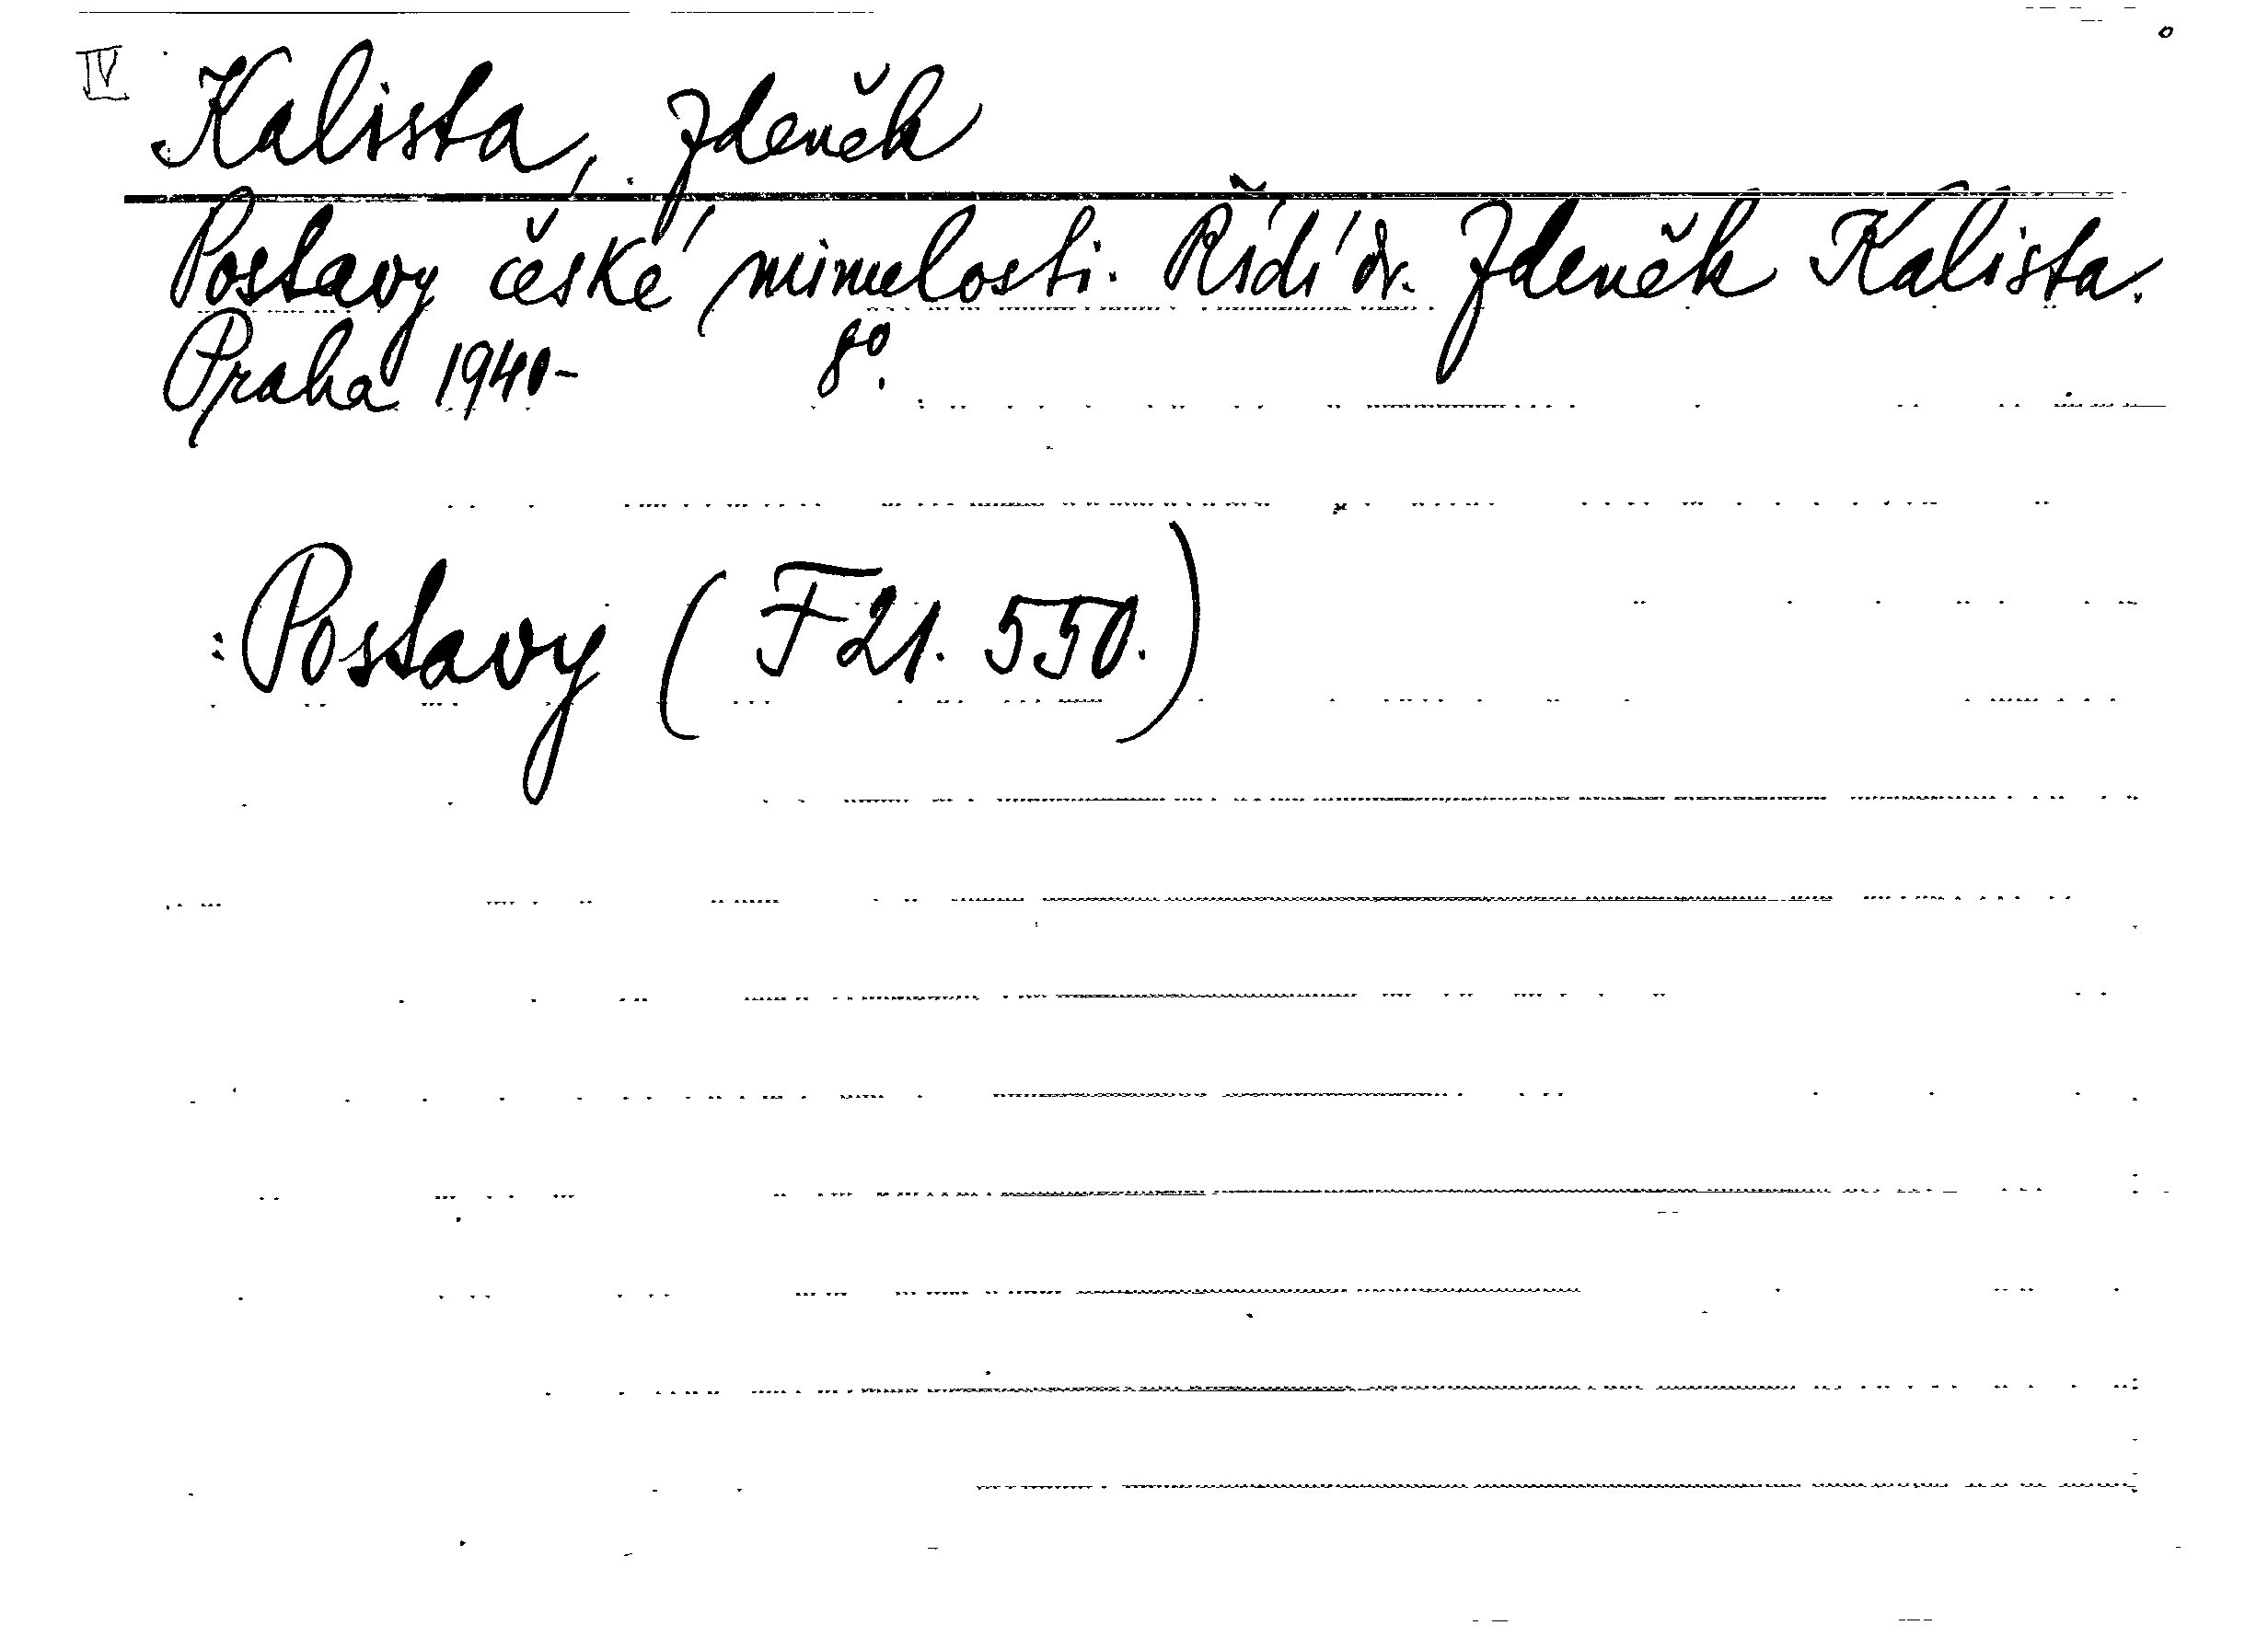 IV
Kalista, Zdeněk
Postavy české minulosti. Řídí dr. Zdeněk Kalista.
Praha 1940- 8º.
: Postavy (F 21. 550.)